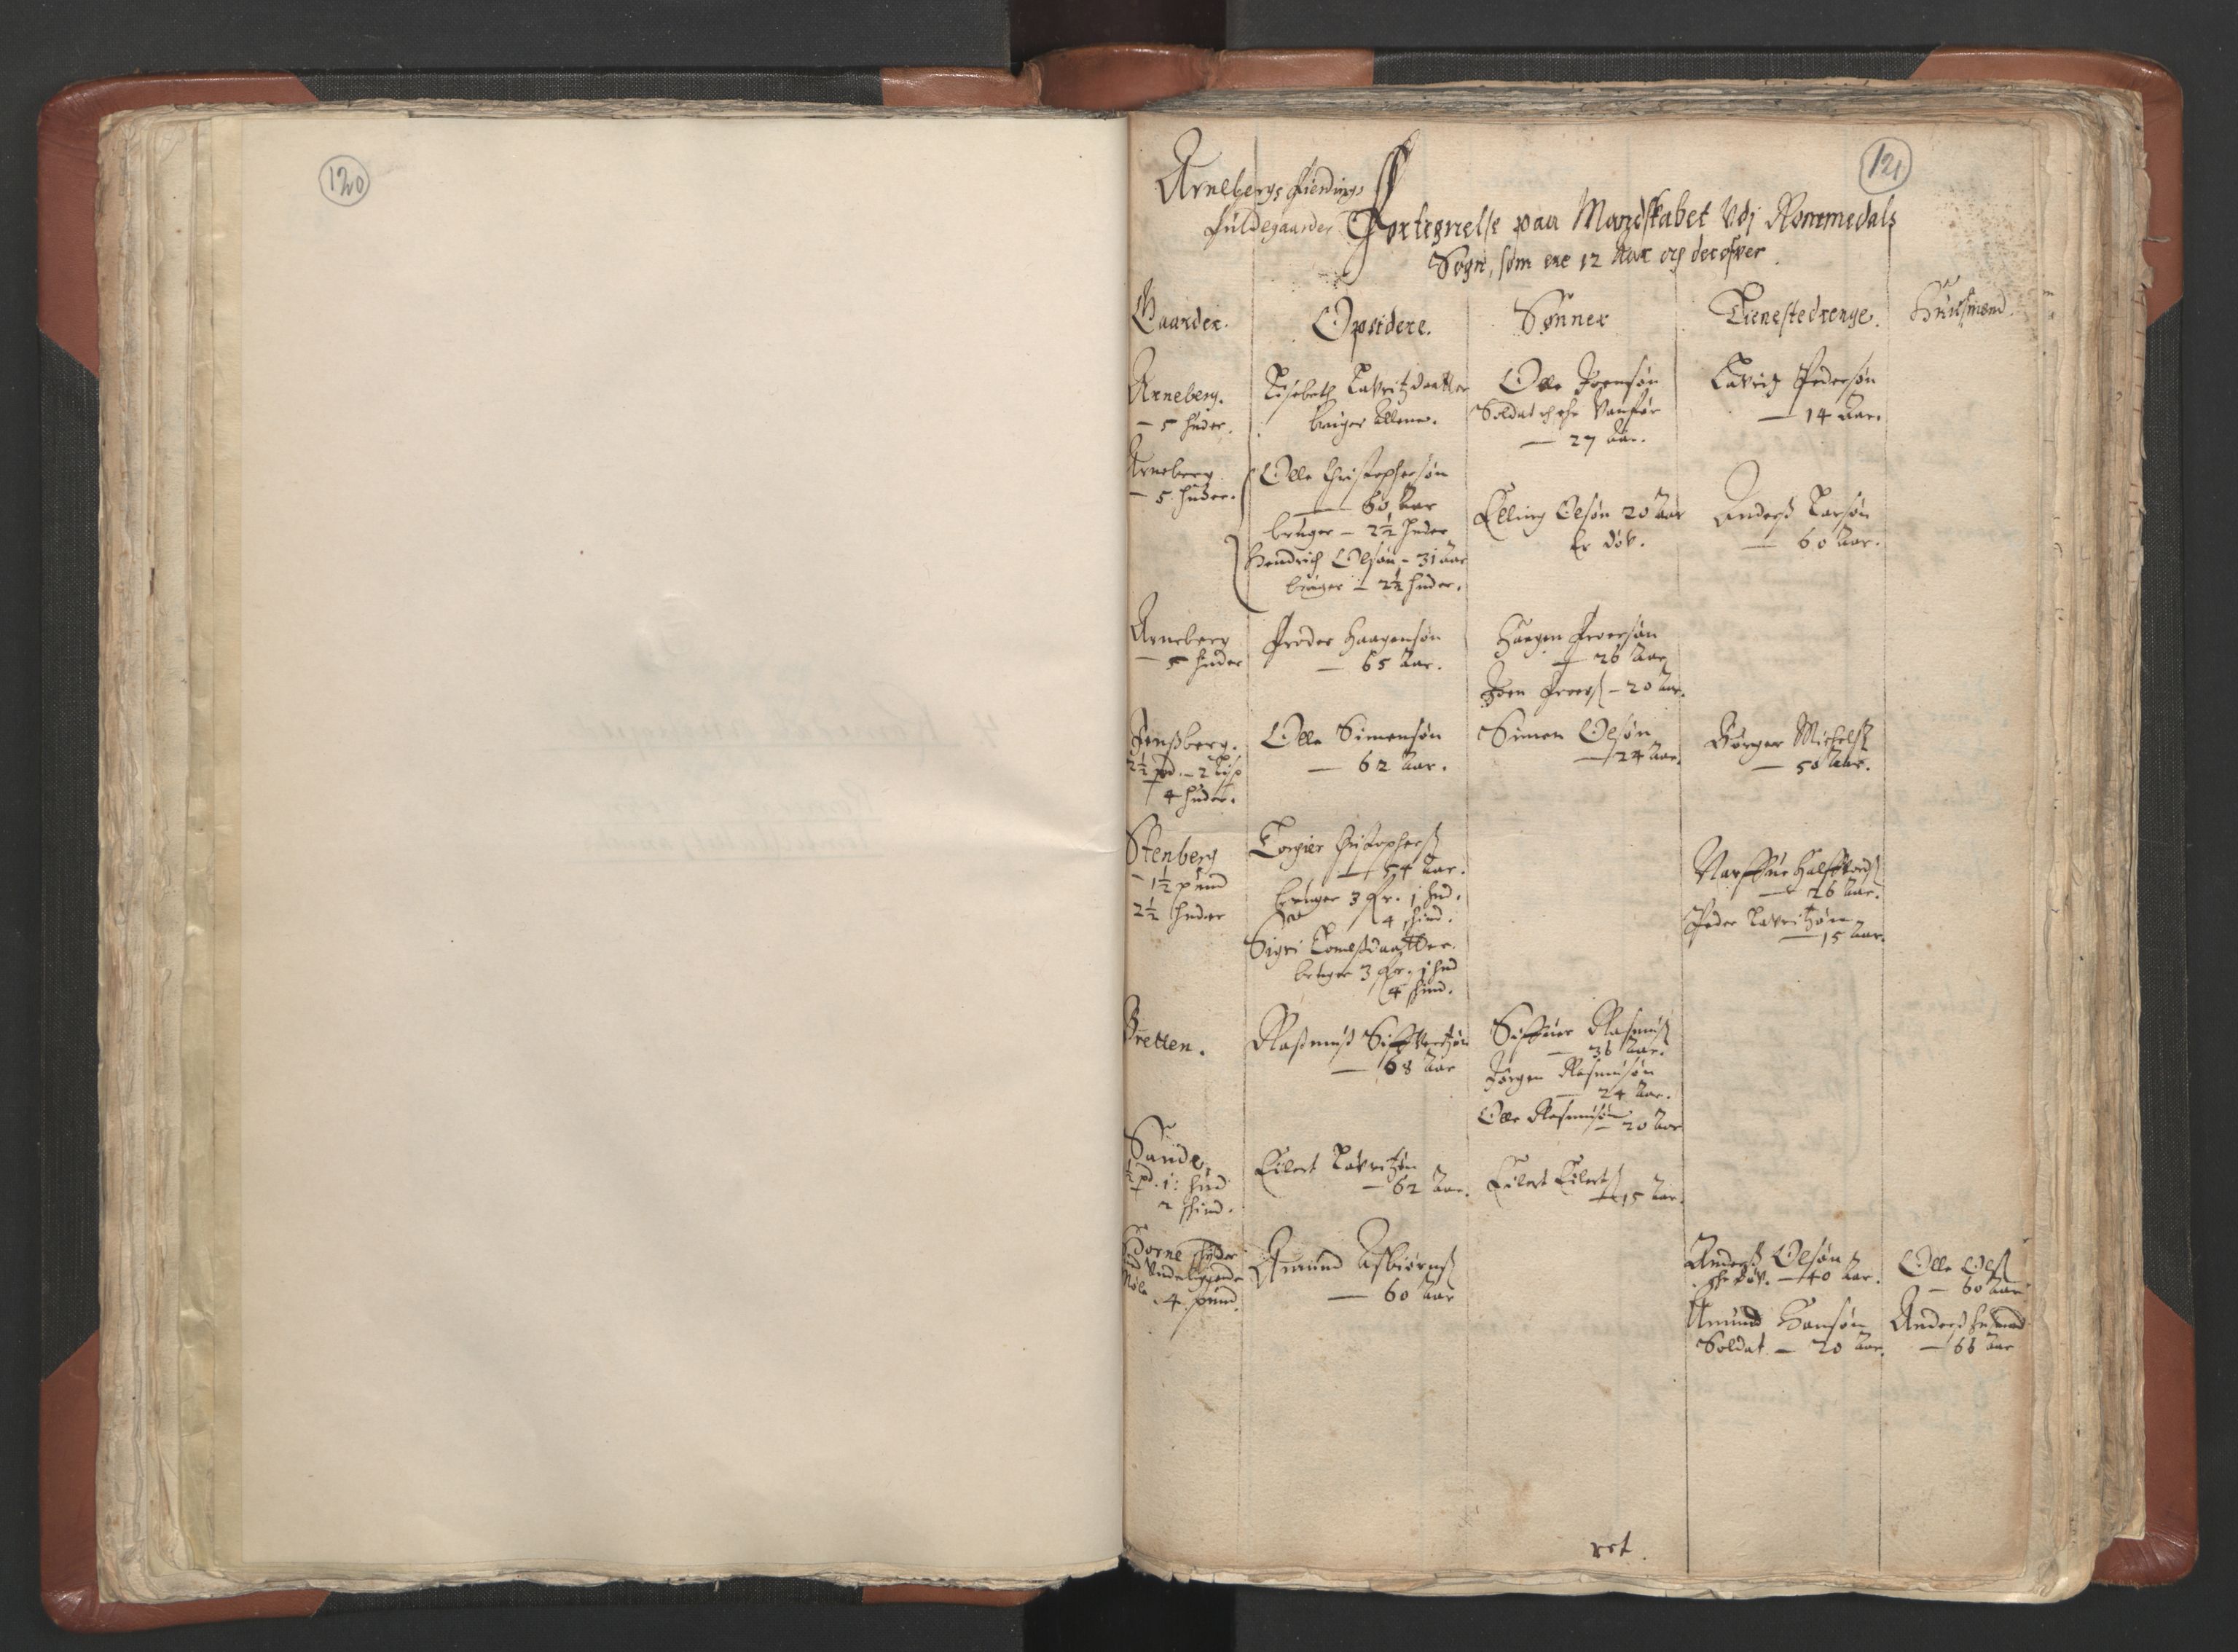 120
121
Arnebergs fierding
fuldegaarder
Fortegnelse paa Mandskabet Udj Rommedals
Sogn, som ere 12 Aar och derofver.
Gaarder. Opsidere. Sønner Tienestedrenge. Huusmend.
Arneberg.
- 5 huder.
Lisebeth Lavritzdaatter
bruger allene.
Olle Joensøn
Soldat och ehr Vanfør
— 27 Aar.
Lavritz Pedersøn
— 14 Aar.
Arneberg
- 5. huder.
Olle Christophersøn
— 60 Aar
bruger - 2½ huder
Hendrich Olsøn - 31 Aar
bruger - 2½ huder.
Elling Olsøn 20 Aar
Er døv.
Anders Larsøn
— 60 Aar.
Arneberg
— 5 huder
Peder Haagensøn
— 65 Aar.
Haagen Pedersøn
— 26 Aar
Joen Peders - 20 Aar.
Jensberg.
2½ pd. - 2 Lisp
4 huder.
Olle Simensøn
— 62 Aar.
Simen Olsøn
— 24 Aar.
Børger Michels
— 50 Aar.
Stenberg
- 1½ pund
2½ huder
Torgier Christophers
— 54 Aar.
bruger 3 fr. 1 hud.
4 skind.
Sigri Tomesdaatter.
bruger 3 fr. 1 hud
4 skind.
Narffue Halffvords
— 26 Aar.
Peder Lavritzøn
— 15 Aar.
Gretten.
Rasmus Siffvertzøn
— 68 Aar
Siffuer Rasmus
— 36 Aar.
Jørgen Rasmusøn
— 24 Aar.
Olle Rasmusøn
— 20 Aar
Sande,
½ pd. 1: hud
2 skind.
Eilert Lavritzøn
— 62 Aar.
Eilert Eilerts
— 15 Aar.
Horne
Underliggende
Møle - 4. pund.
Amund Asbiørns
— 60 Aar
Anders Olsøn
ehr døv. — 40 Aar.
Amund Hansøn
Soldat — 20 Aar.
Olle Ols
— 60 Aar
Anders husmand
— 66 Aar